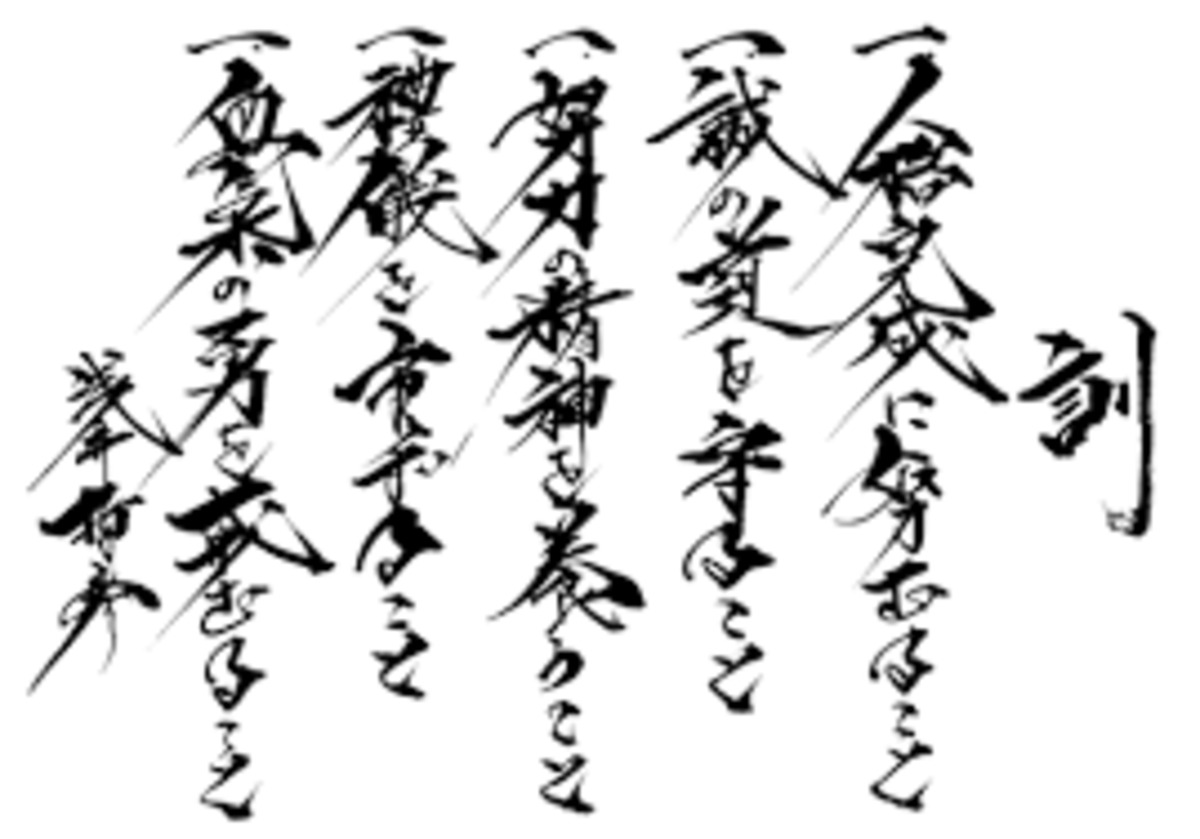 一、人格完成に努むること
一、誠の道を守ること
一、努力の精神を養うこと
一、禮儀を重んずること
一、血気の勇を戒むること